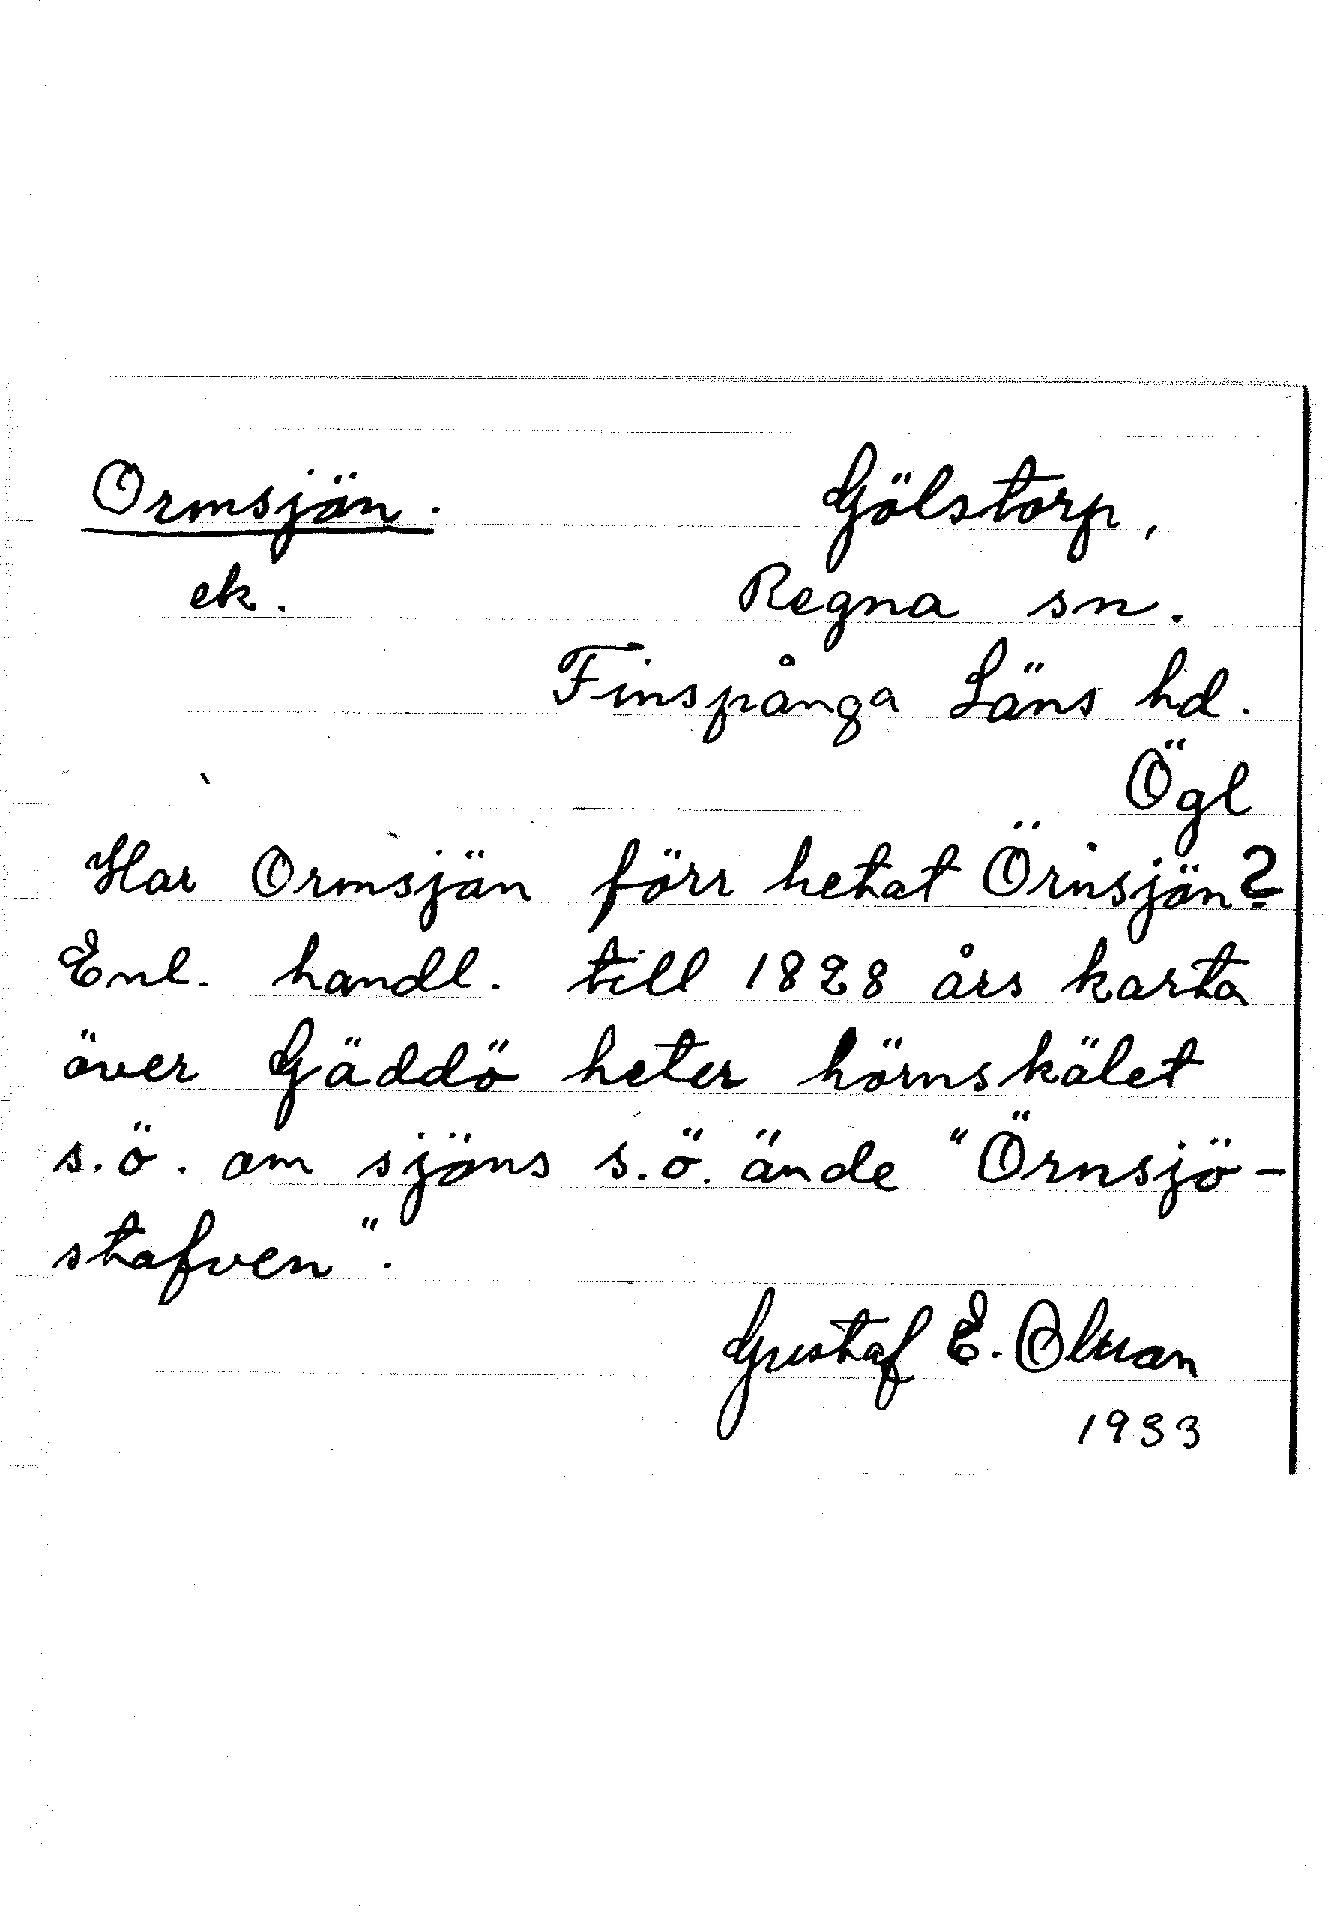 Ormsjön.
Gölstorp,
ek.
Regna sn.
Finspånga Läns hd.
Ögl
Har Ormsjön förr hetat Örnsjön?
Enl. handl. till 1828 års karta
över Gäddö heter hörnskälet
s.ö. om sjöns s.ö. ände "Örnsjö-
stafven".
Gustaf E.
1933